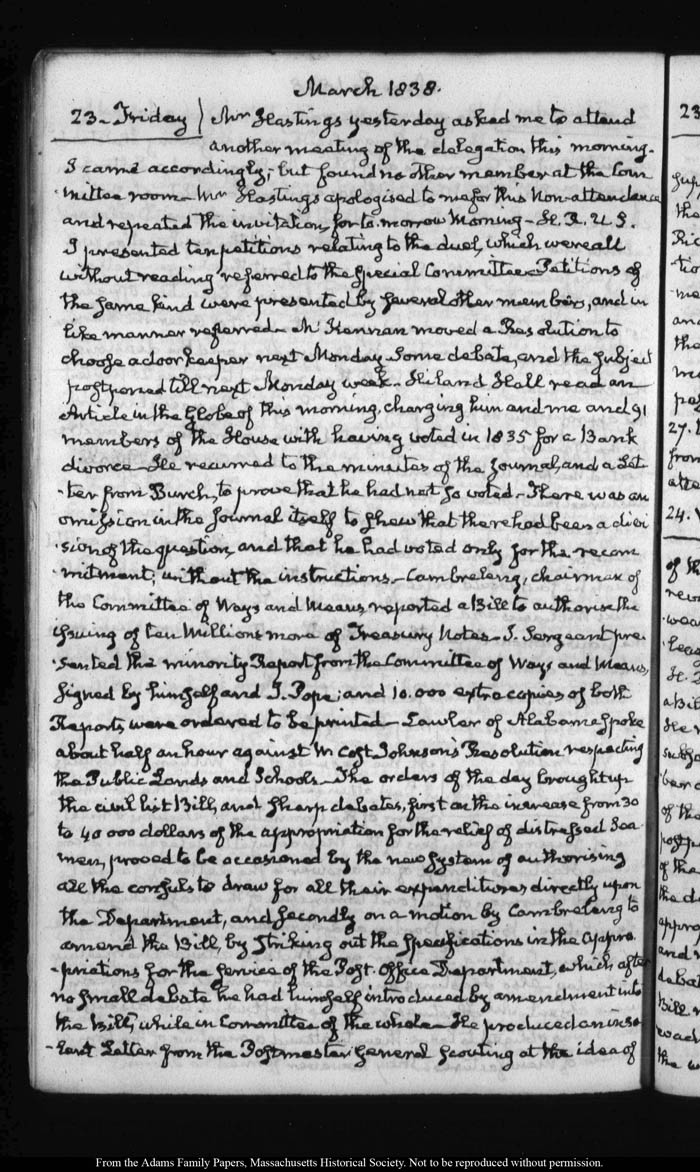 March 1838.
23. Friday) Mr Hastings yesterday asked me to attend
another meeting of the delegation this morning.
I came accordingly; but found no other member at the Com
mittee room. Mr Hastings apologised to me for this Non-attendance
and repeated the invitation, for to-morrow Morning — H. R. U S.
I presented ten petitions relating to the duel, which were all
without reading referred to the Special Committee. Petitions of
the same kind were presented by several other members, and in
like manner referred — Mr moved a Resolution to
choose a door keeper next Monday. Some debate, and the subject
postponed till next Monday week — Hiland Hall read an
Article in the Globe of this morning, charging him and me and 91
members of the House with having voted in 1835 for a Bank
divorce — He recurred to the minutes of the Journal, and a Let
-ter from Burch, to prove that he had not so voted. There was an
omission in the Journal itself to shew that there had been a divi
-sion of the question, and that he had voted only for the recom
-mitment, without the instructions. — Cambreleng, chairman of
the Committee of Ways and Means, reported a Bill to authorise the
issuing of ten Millions more of Treasury Notes — J. Sergeant pre
-sented the minority Report from the Committee of Ways and Means,
signed by himself and J. Pope; and 10.000 extra copies of both
Reports, were ordered to be printed — Lawler of Alabama spoke
about half an hour against Wm Cost Johnson's Resolution respecting
the Public Lands and Schools — The orders of the day brought up
the civil list Bill, and sharp debates, first on the increase from 30
to 40 000 dollars of the appropriation for the relief of distressed Sea
men, proved to be occasioned by the new system of authorising
all the consuls to draw for all their expenditures directly upon
the Department, and secondly on a motion by Cambreleng to
amend the Bill, by striking out the specifications in the appro
-priations for the service of the Post. Office Department, which after
no small debate he had himself introduced by amendment into
the Bill, while in Committee of the whole — He produced an inso
-lent Letter from the Postmaster General scouting at the idea of
23
27.
from
24.
of th
of the
the
From the Adams Family Papers, Massachusetts Historical Society. Not to be reproduced without permission.